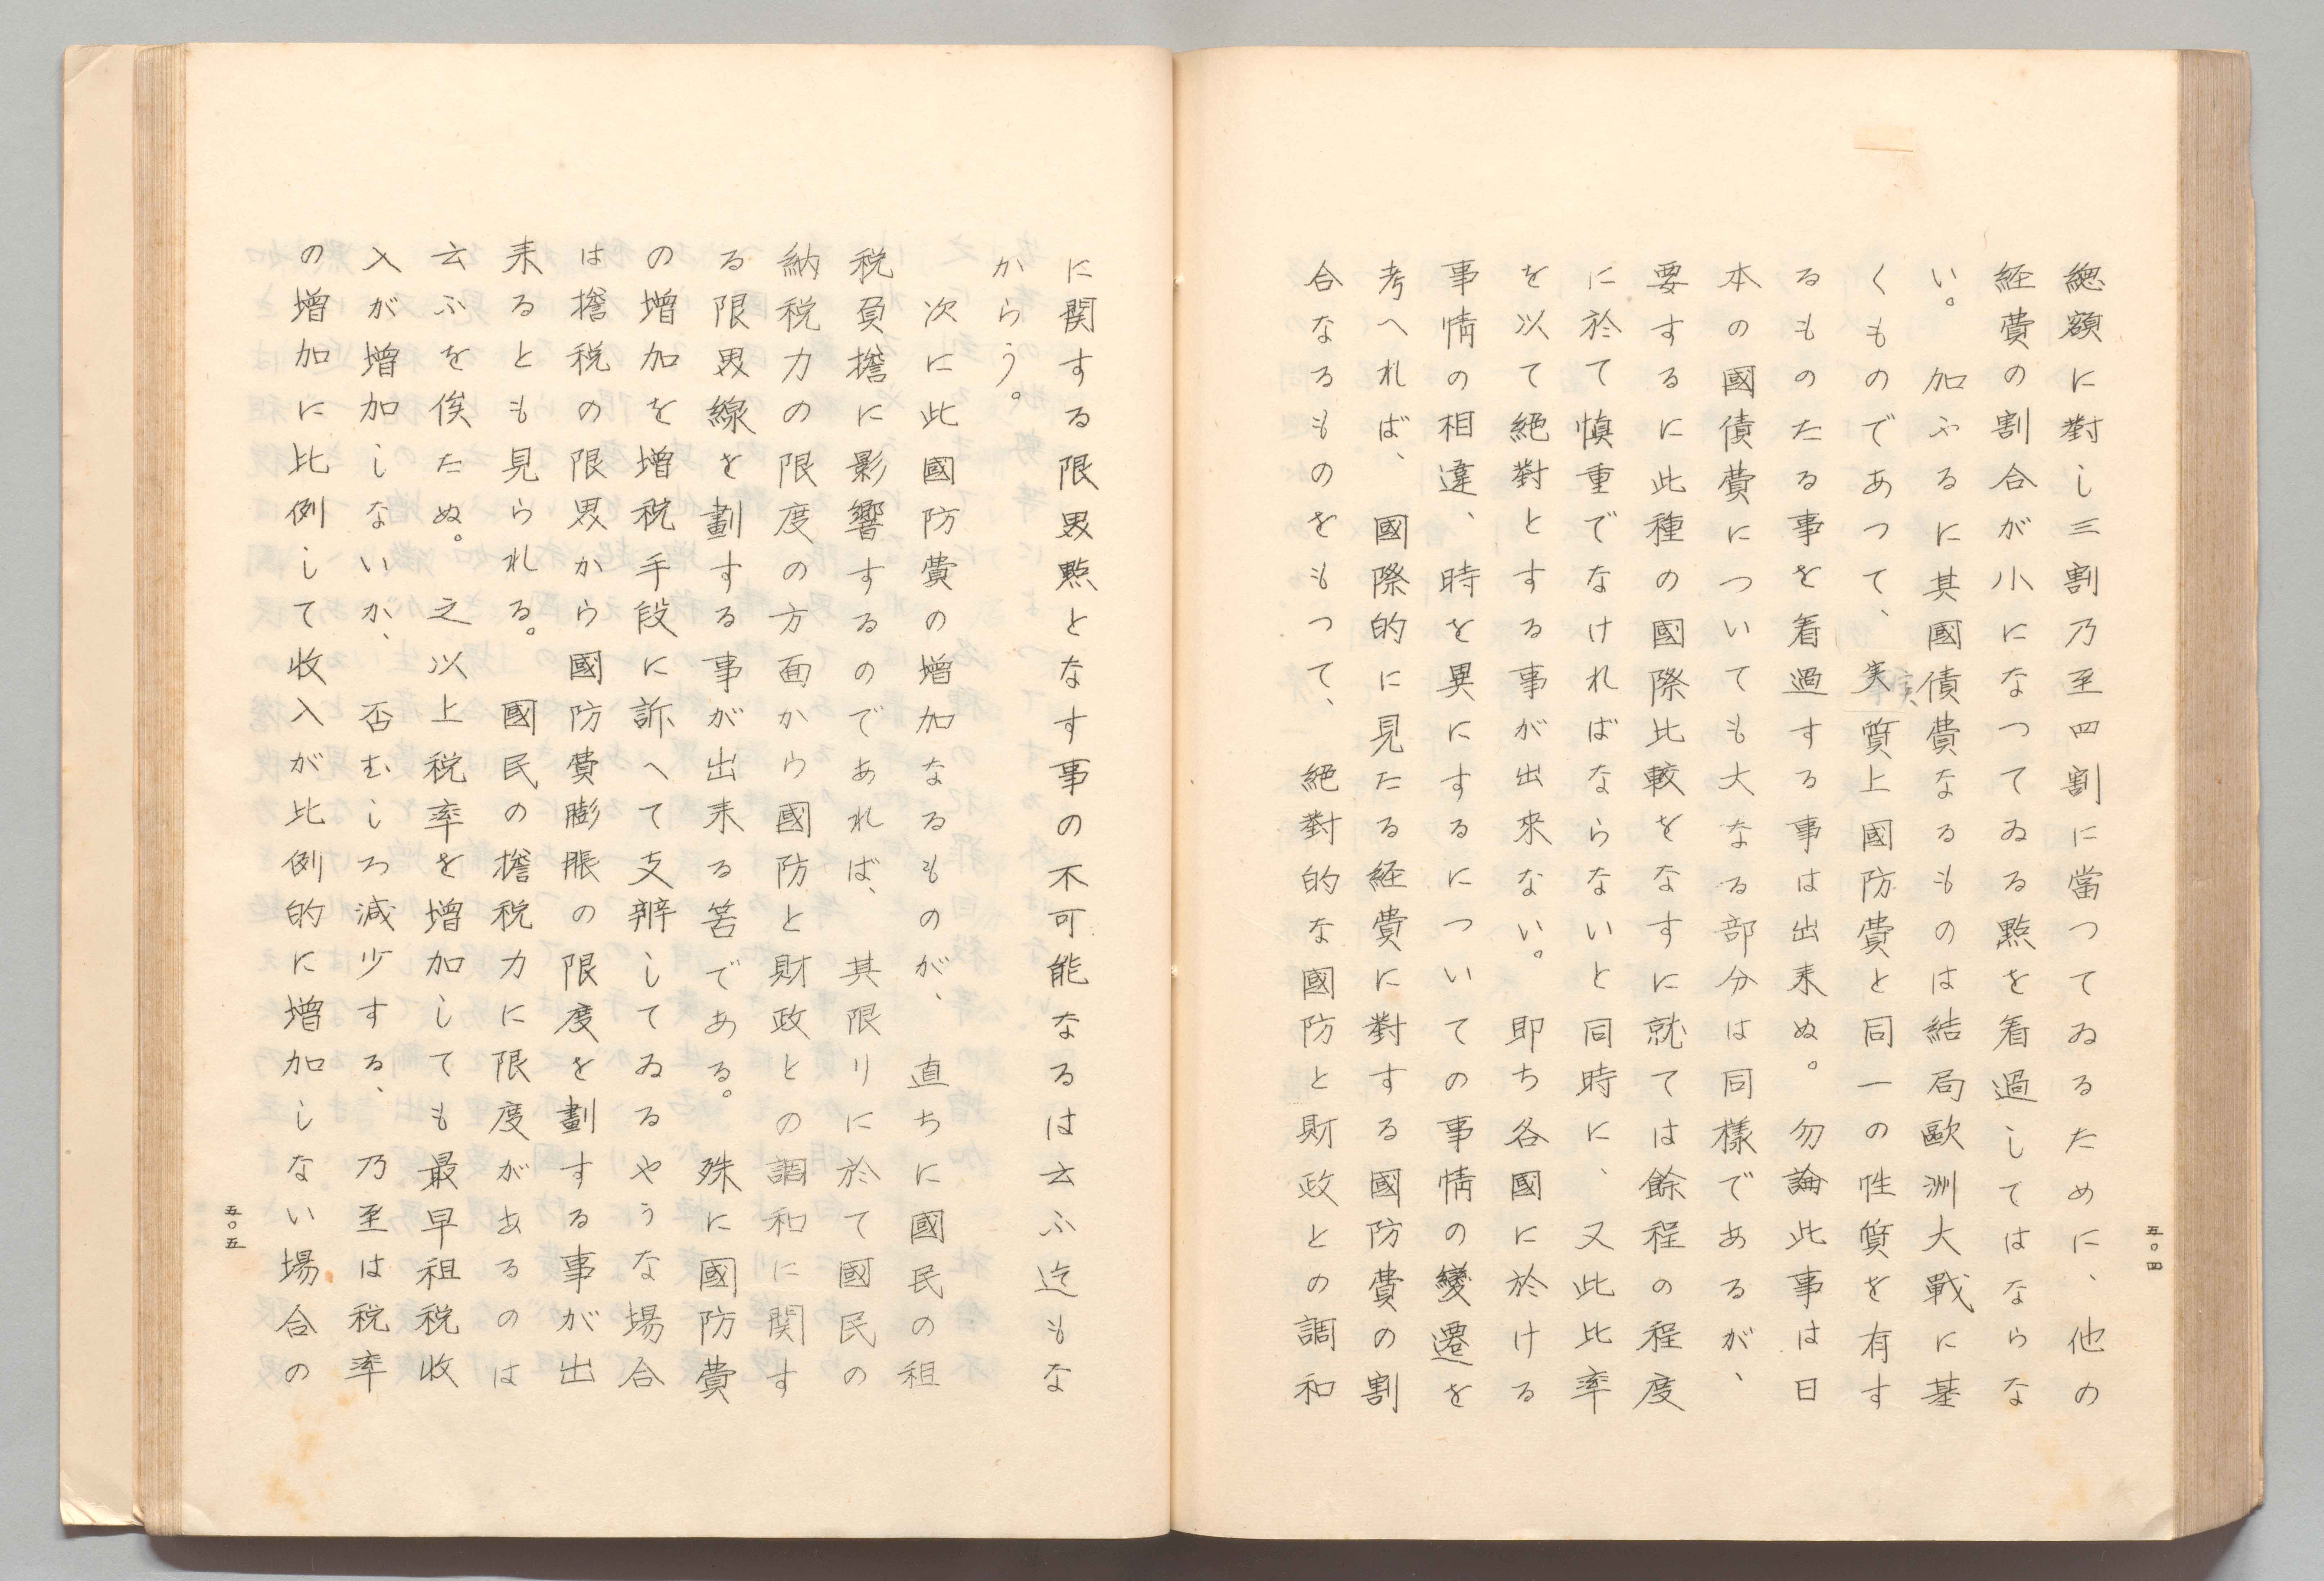 總額に對し三割乃至四割に當つてゐるために、他の
経費の割合が小になつてゐる點を看過してはならな
い。加ふるに其國債費なるものは結局歐洲大戰に基
くものであつて、実質上國防費と同一の性質を有す
実
るものたる事を看過する事は出来ぬ。勿論此事は日
本の國債費についても大なる部分は同様であるが、
要するに此種の國際比較をなすに就ては餘程の程度
に於て愼重でなければならないと同時に、又此比率
を以て絶對とする事が出來ない。即ち各國に於ける
事情の相違、時を異にするについての事情の變遷を
考へれば、國際的に見たる経費に對する國防費の割
合なるものをもつて、絶對的な國防と財政との調和
五〇四
に関する限界點となす事の不可能なるは云ふ迄もな
からう。
次に此國防費の増加なるものが、直ちに國民の租
税負擔に影響するのであれば、其限りに於て國民の
納税力の限度の方面から國防と財政との調和に関す
る限界線を劃する事が出来る筈である。殊に國防費
の増加を増税手段に訴へて支辨してゐるやうな場合
は擔税の限界から國防費膨脹の限度を劃する事が出
来るとも見られる。國民の擔税力に限度があるのは
云ふを俟たぬ。之以上税率を増加しても最早租税收
入が増加しないか、否むしろ減少する、乃至は税率
の増加に比例して收入が比例的に増加しない場合の
五〇五